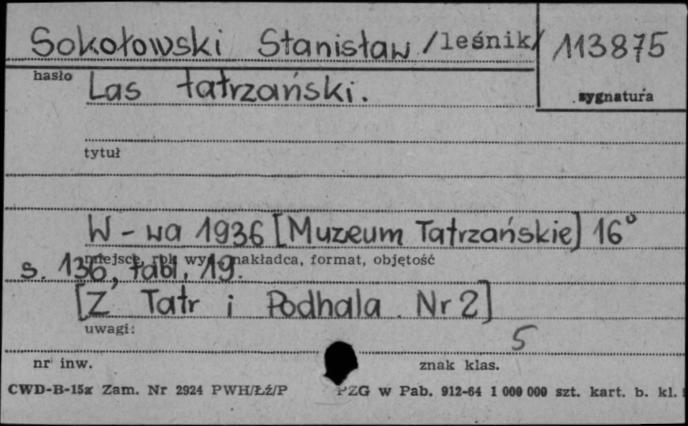 Sokołowski Stanisław /leśnik/ 113875
hasło
sygnatura
Las tatrzański.
tytuł
W-wa 1936 [Muzeum Tatrzańskie] 16°
miejsce, rok wyd., nakładca, format, objętość
s. 136, tabl. 19.
[Z Tatr i Podhala Nr 2]
uwagi:
5
nr inw. znak klas.
CWD-B-15x Zam. Nr 2924 PWH/Łź/P PZG w Pab. 912-64 1 000 000 szt. kart. b. kl.